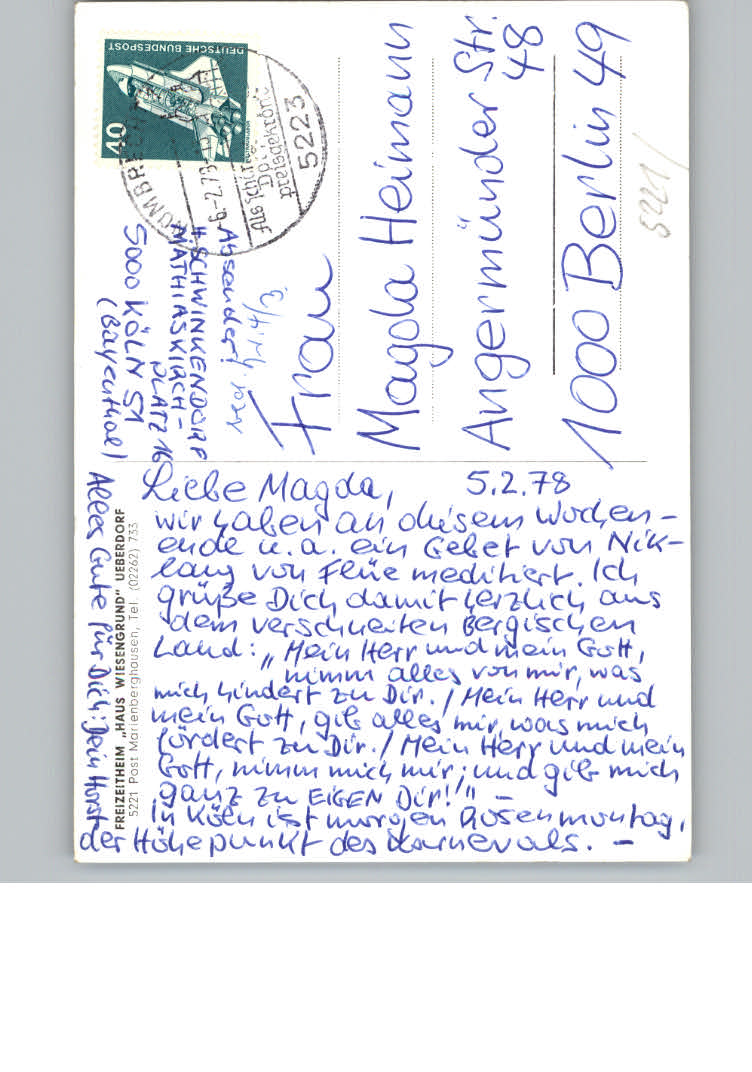 Liebe Magda, 5.2.78
wir haben an diesem Wochen-
ende u.a. ein Gebet von Nik-
laus von Flüe meditiert. Ich
grüße Dich damit herzlich aus
dem verschneiten Bergischen
Land: „Mein Herr und mein Gott,
nimm alles von mir, was
mich hindert zu Dir. / Mein Herr und
mein Gott, gib alles mir, was mich
fördert zu Dir. / Mein Herr und mein
Gott, nimm mich mir; und gib mich
ganz zu EIGEN Dir!" –
In Köln ist morgen Rosenmontag,
der Höhepunkt des Karnevals. –
Alles Gute für Dich: Dein Horst
FREIZEITHEIM „HAUS WIESENGRUND" UEBERDORF
5221 Post Marienberghausen, Tel. (02262) 733
DEUTSCHE BUNDESPOST
40
5223
6.-2.78
preisgekrönt
Absender:
H. SCHWINKENDORF
MATHIASKIRCH-
PLATZ 16
5000 KÖLN 51
(Bayenthal)
Frau
Magda Heimann
Angermünder Str.
48
1000 Berlin 49
5221/